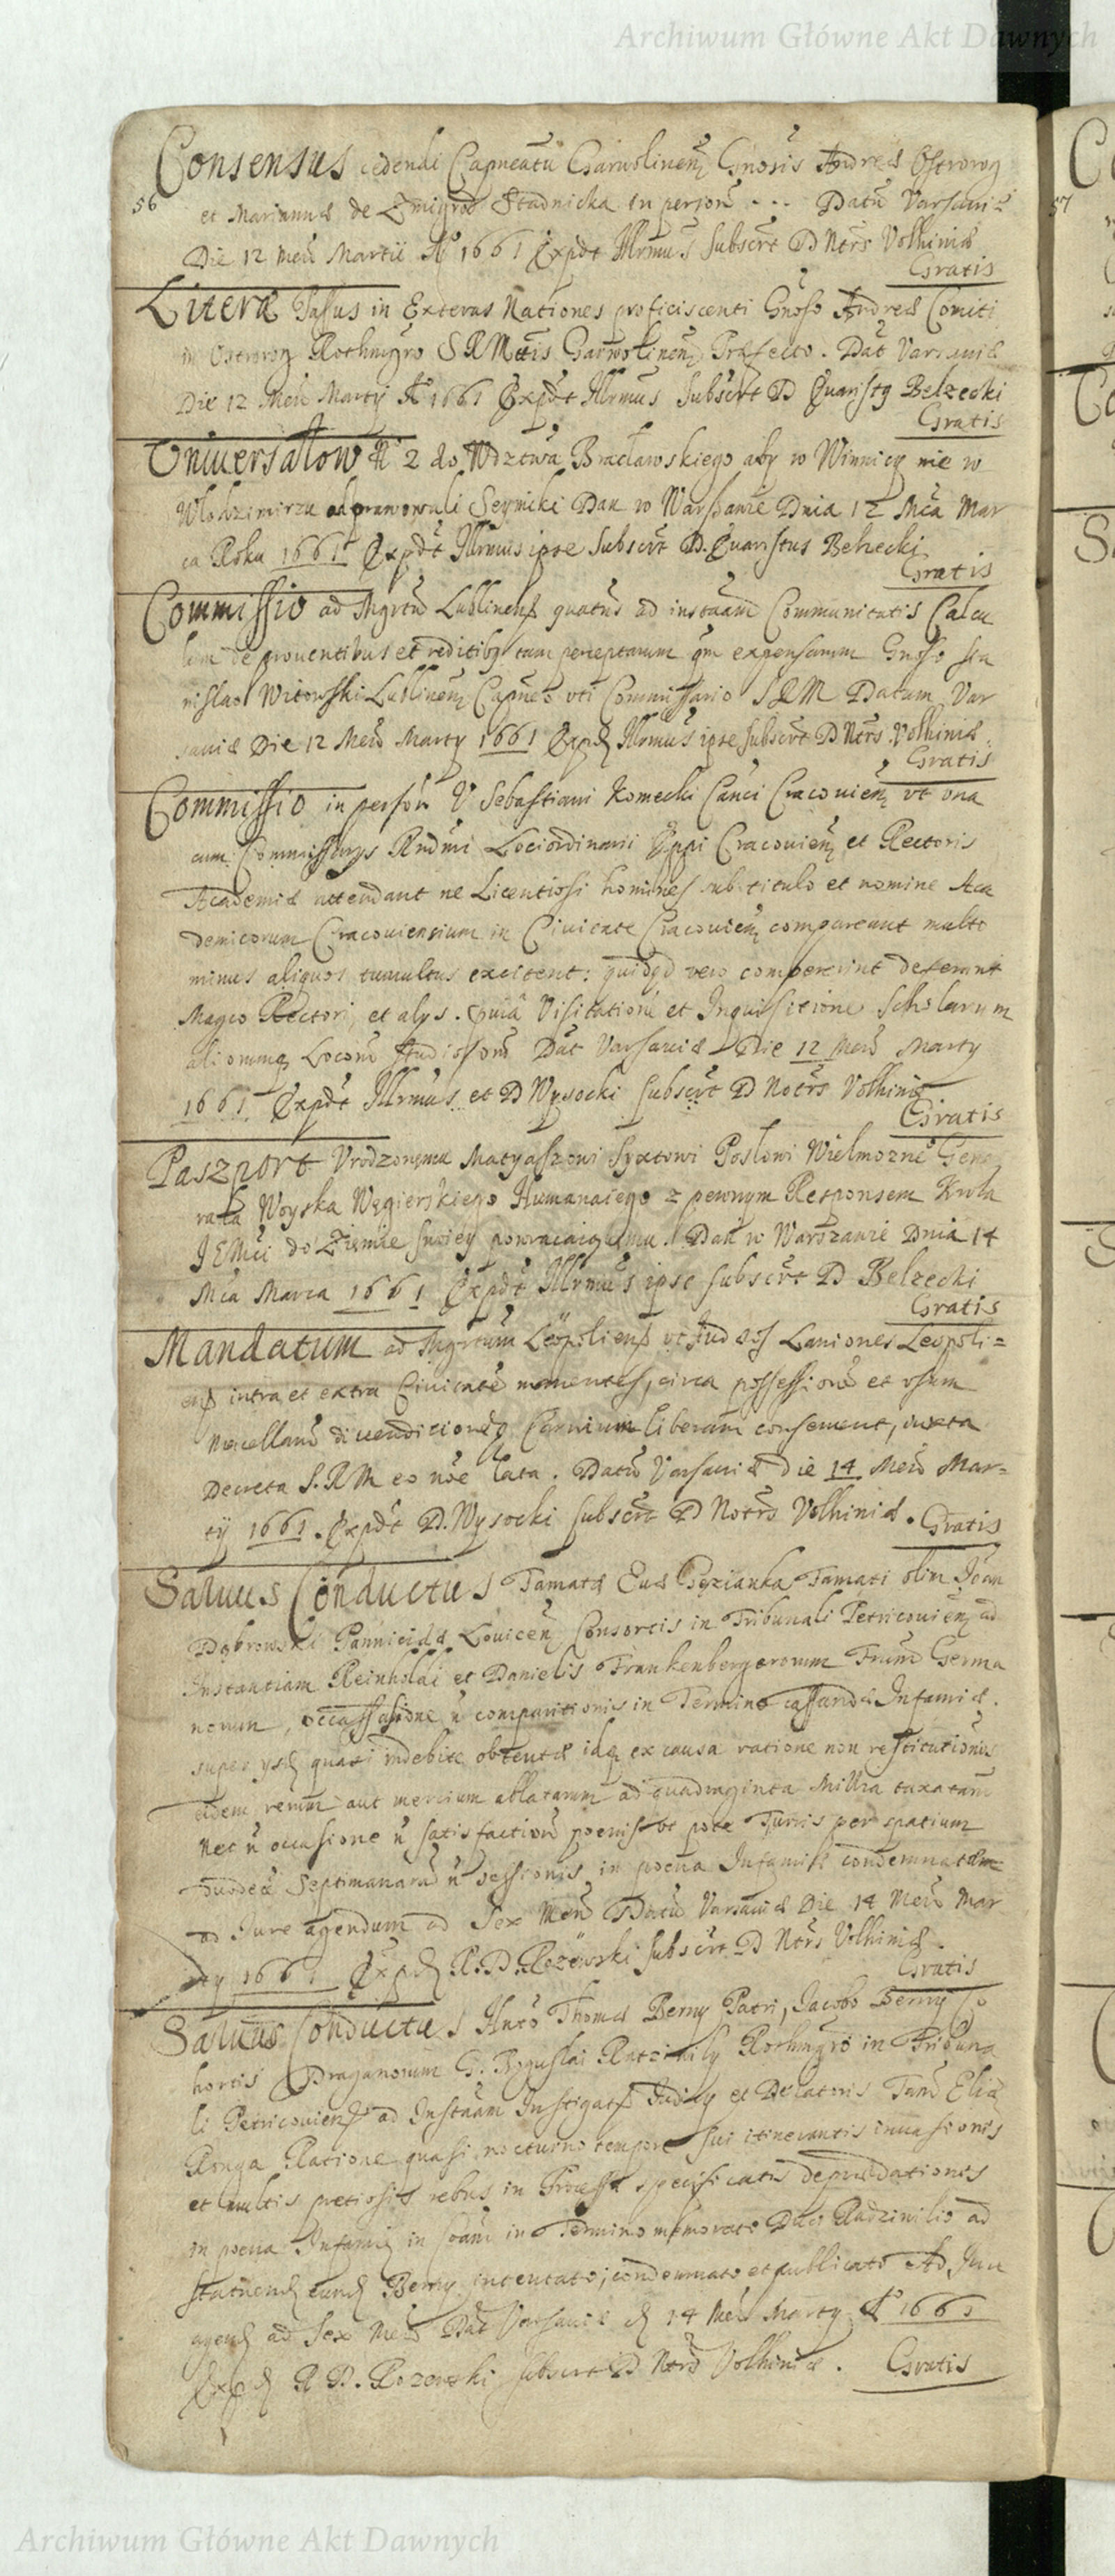 Archiwum Główne Akt Dawnych
Consensus cedendi Capneatu Garwolinen Gnosis Andreæ Ostrorog
56
et Mariannæ de Zmigrod Stadnicka in person . . . Datu Varsaviæ
Die 12 Men Martii Ao 1661 Expdt Illrmus Subscrt D Ntrs Volhiniæ
Gratis
Literæ Passus in Exteras Nationes proficiscenti Gnoso Andreæ Comiti
in Ostrorog Rothmgro SRMttis Garwolinen Præfecto. Dat Varsaviæ
Die 12 Men Marty Ao 1661 Expdt Illrmus Subscrt D Evaristg Belzecki
Gratis
Uniuersałow No 2 do Wdztwa Bracławskiego aby w Winnicy nie w
Włodzimirzu odprawowali Seymiki Dan w Warszawie Dnia 12 Mca Mar
ca Roku 1661 Expdt Illrmus ipse Subscrt D. Evaristus Belzecki
Gratis
Commissio ad Mgrtu Lublinens quatus ad instaam Communitatis Calcu
lum de prouentibus et reditibg tam perceptarum qm expensarum Gnoso Sta
nislao Witowski Lublinen Capneo vti Commissario SRM Datum Var
saviæ Die 12 Men Marty 1661 Expd Illrmus ipse Subscrt D Ntrs Volhiniæ
Gratis
Commissio in person V Sebastiani Komecki Canci Cracouien vt vna
cum Commissarys Rndmi Lociordinarii Eppi Cracouien et Rectoris
Academiæ attendant ne Licentiosi homines sub titulo et nomine Aca
demicorum Cracouiensium in Ciuitate Cracouien compareant multo
minus aliquos tumultus excitent: quidqd vero compererint deferant
Magco Rectori, et alys. Visitatione et Inquisitione Scholarum
aliorumq Locoru Studiosoru Dat Varsaviæ Die 12 Men Marty
1661 Expdt Illrmus et D Wysocki Subscrt D Notrs Volhiniæ
Gratis
Paszport Vrodzonemu Matyaszowi Syxtowi Posłowi Wielmożne Gene
rała Woyska Węgierskiego Humanaiego z pewnym Responsem Krola
JEMci do Ziemie swoiey powracaiącemu. Dan w Warszawie Dnia 14
Mca Marca 1661 Expdt Illrmus ipse Subscrt D Belzecki
Gratis
Mandatum ad Mgrtum Leopoliens vt Judæos Laniones Leopoli=
ens intra et extra Ciuitate manentes, circa possessione et vsum
Macellaru diuenditioneq Carnium liberam conseruent, iuxta
Decreta S.RM eo noe lata. Datu Varsaviæ die 14 Men Mar=
tij 1661. Expdt D. Wysocki Subscrt D Notrs Volhiniæ. Gratis
Saluus Conductus Famatæ Euæ Famati olim Joan
Dąbrowski Pannicidæ Louicen Consortis in Tribunali Petricouien ad
Instantiam Reinholdi et Danielis Frankenbergerorum Frum Germa
norum, occassione n comparitionis in Termino cassandæ Infamiæ.
super ysd quasi indebite obtentæ idq ex causa ratione non restitutionis
eidem rerum aut mercium ablatarum ad quadraginta Millia taxatam
nec n occasione n satisfaction poenis vt pote Turris per spatium
duodeci Septimanaru n sessionis in poena Infamiæ condemnatam
ad Jure agendum ad Sex Men Datu Varsaviæ Die 14 Men Mar
ty 1661 Expd R.D. Rozewski Subscrt D Ntrs Volhiniæ.
Gratis
Saluus Conductus Thomæ Berny Patri, Jacobo Berny Co
hortis Draganorum G. Boguslai Rothmgro in Tribuna
li Petricouiens ad Instaam Instigats Judicy et Delatoris
Ronga Ratione quasi nocturno tempore sui itinerantis inuasionis
et multis pretiosis rebus in Processu specificatis deprædationis
in poena Infamiæ in in Termino memorato Duo Radzinilio ad
statuend eund Berny intentato, condemnato et publicato Ad Jure
agend ad Sex Men Dat Varsaviæ d 14 Men Marty Ao 1661
Expd R D. Rozewski Subscrt D Ntrs Volhiniæ. Gratis
57
Archiwum Główne Akt Dawnych